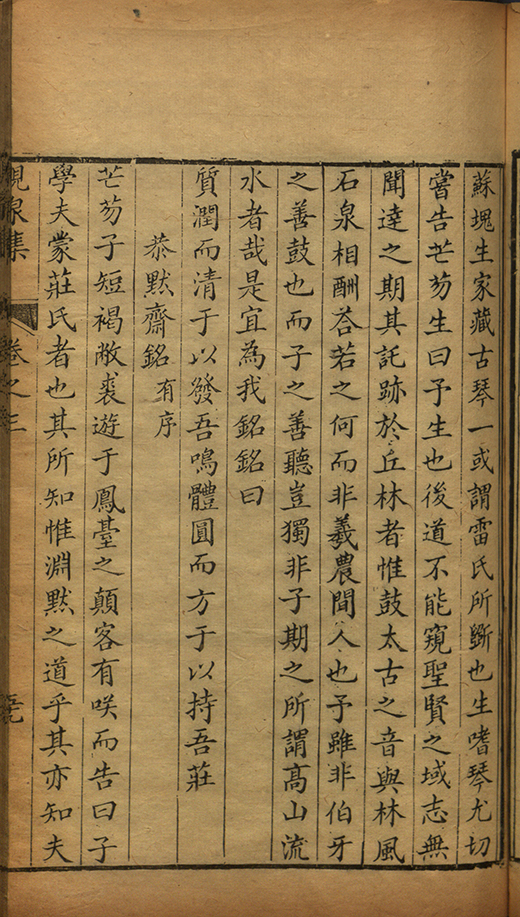 蘇塊生家藏古琴一或謂雷氏所斲也生嗜琴尤切
嘗告芒芴生曰予生也後道不能窺聖賢之域志無
聞達之期其託跡於丘林者惟鼓太古之音與林風
石泉相酬荅若之何而非羲農間人也予雖非伯牙
之善鼓也而子之善聽豈獨非子期之所謂高山流
水者哉是宜為我銘銘曰
質潤而清于以發吾鳴體圓而方于以持吾莊
恭默齋銘有序
芒芴子短褐敝裘遊于鳳臺之顛客有咲而告曰子
學夫蒙莊氏者也其所知惟淵默之道乎其亦知夫
泉集 卷之三